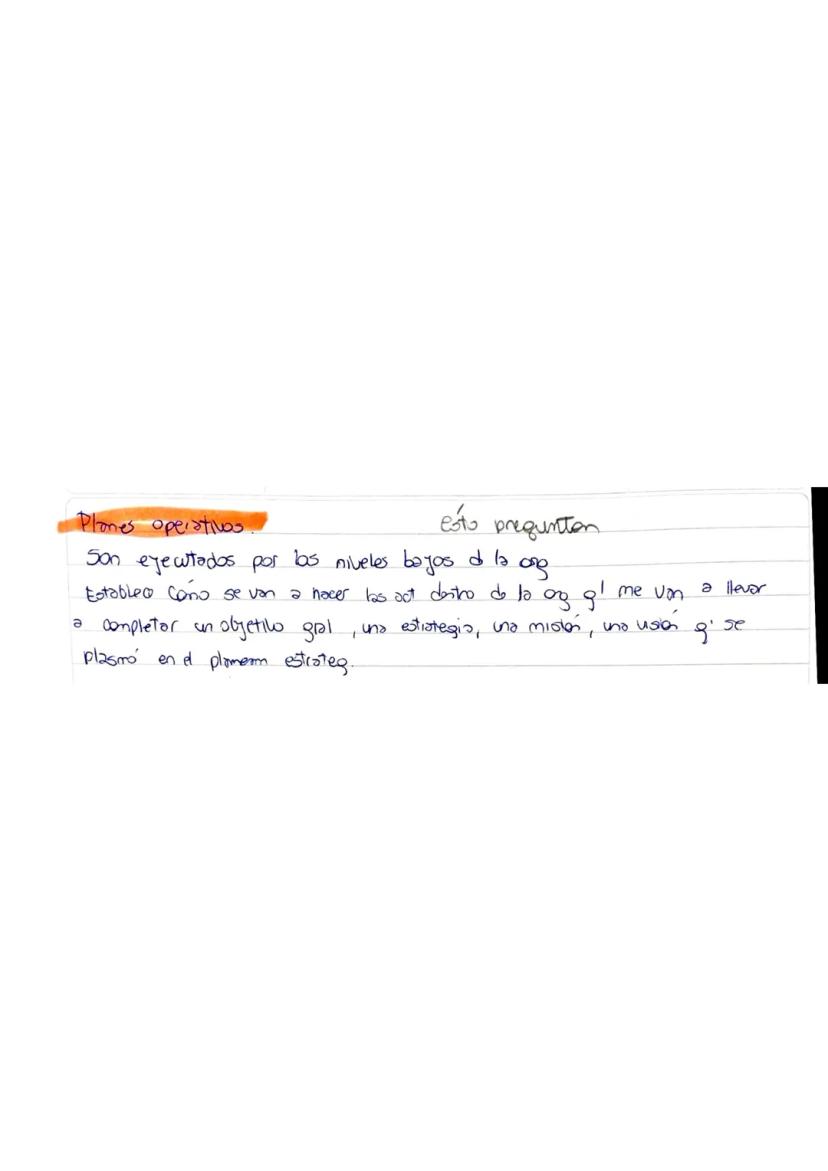 Planes operativos. ésto preguntan
Son ejecutados por los niveles bajos d la org
Establece cómo se van a hacer las act dentro de la org q' me van a llevar
a completar un objetivo gral, una estrategia, una misión, una visión q' se
plasmó en el planeam estrateg.